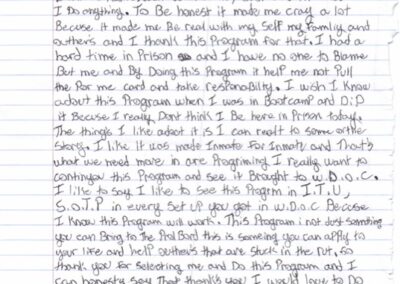 I Do anything. To Be honest it made me cray a lot
Because it made me Be real with my Self my Family and
outhers and I thank this Program for that. I had a
hard time in Prison and I have no one to Blame
But me and By Doing this Program it help me not Pull
the Por me card and take responsobility. I wish I know
about this Program when I was in Bootcamp and DiD
it Because I really Dont think I Be here in Prison today.
The thing's I like adout it is I can realt to some of the
storys. I like it was made Inmate for Inmate and That's
what we need more in are Programing I really want to
continyou this Program and see it Brought to W.D.O.C.
I like to say I like to see this Progrm in I.T.U,
S.O.T.P in every Set up you got in W.D.O.C Becuse
I Know this Program will work. This Program i not Just something
you can Bring to the Prol Bord this is someing you can apply to
your life and help outhers that are stuck in the rut. So
thank you for selecting me and Do this Program and I
can honesty Say That thank's you I would love to Do